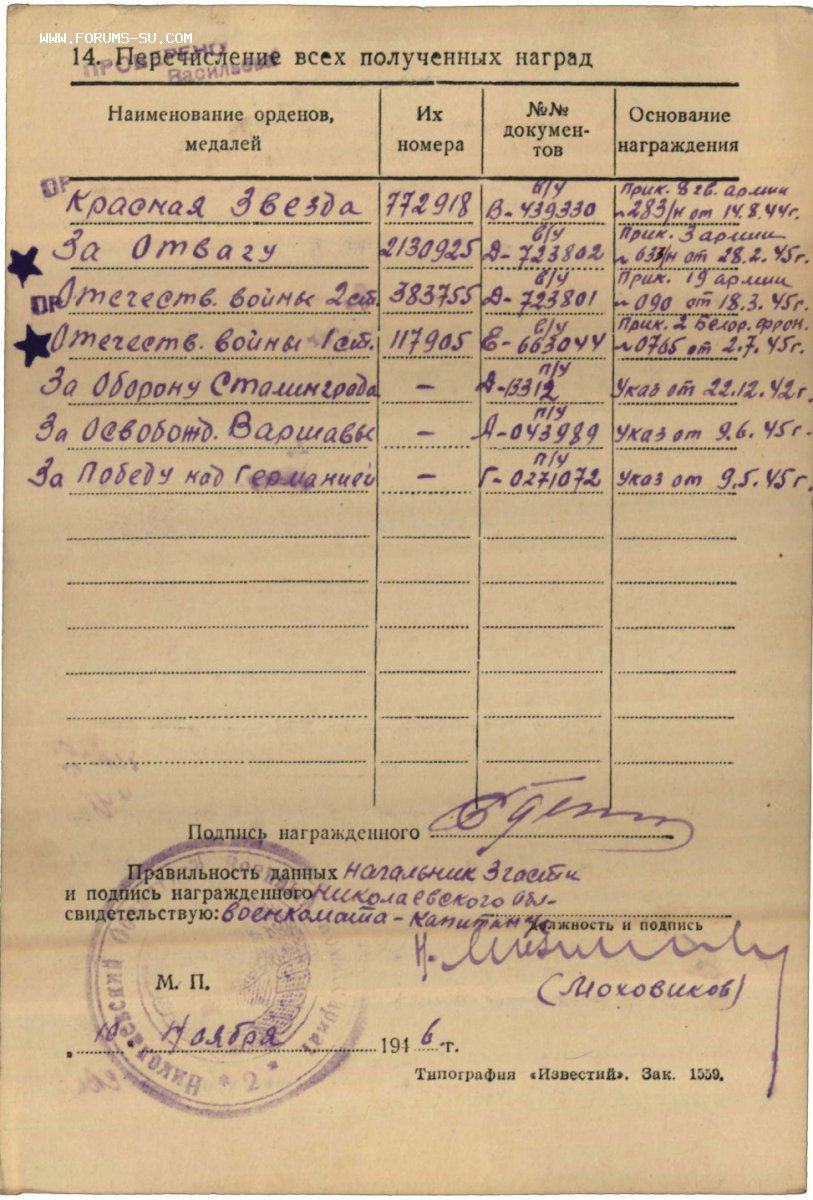 WWW.FORUMS-SU.COM
ПРОВЕРЕНО
Васильева
14. Перечисление всех полученных наград
Наименование орденов, медалей
Их номера
№№ документов
Основание награждения
ОР
Красная Звезда 772918 в/у В-439330 Прик. 8 гв. армии №283/н от 14.8.44г.
За Отвагу 2130925 в/у Д-723802 Прик. 3 армии № 633/н от 28.2.45г.
ОР
Отечеств. войны 2 ст. 383755 в/у Д-723801 Прик. 19 армии № 090 от 18.3.45г.
Отечеств. войны 1 ст. 117905 в/у Е-663044 Прик. 2 Белор. фрон. №0765 от 2.7.45г.
За Оборону Сталинграда - п/у Д-13312 Указ от 22.12.42г.
За Освобожд. Варшавы - п/у А-043989 Указ от 9.6.45г.
За Победу над Германией - п/у Г-0271072 Указ от 9.5.45г.
Подпись награжденного
Правильность данных Начальник 3 части
и подпись награжденного Николаевского обл-
свидетельствую: военкомата - капитан
должность и подпись
(Моховиков)
М. П.
Николаевский
* 2 *
"10" Ноября 1946 г.
Типография «Известий». Зак. 1559.